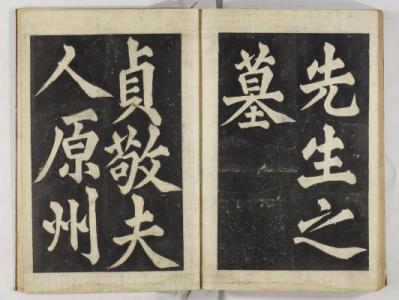 先生之
墓
貞敬夫
人原州